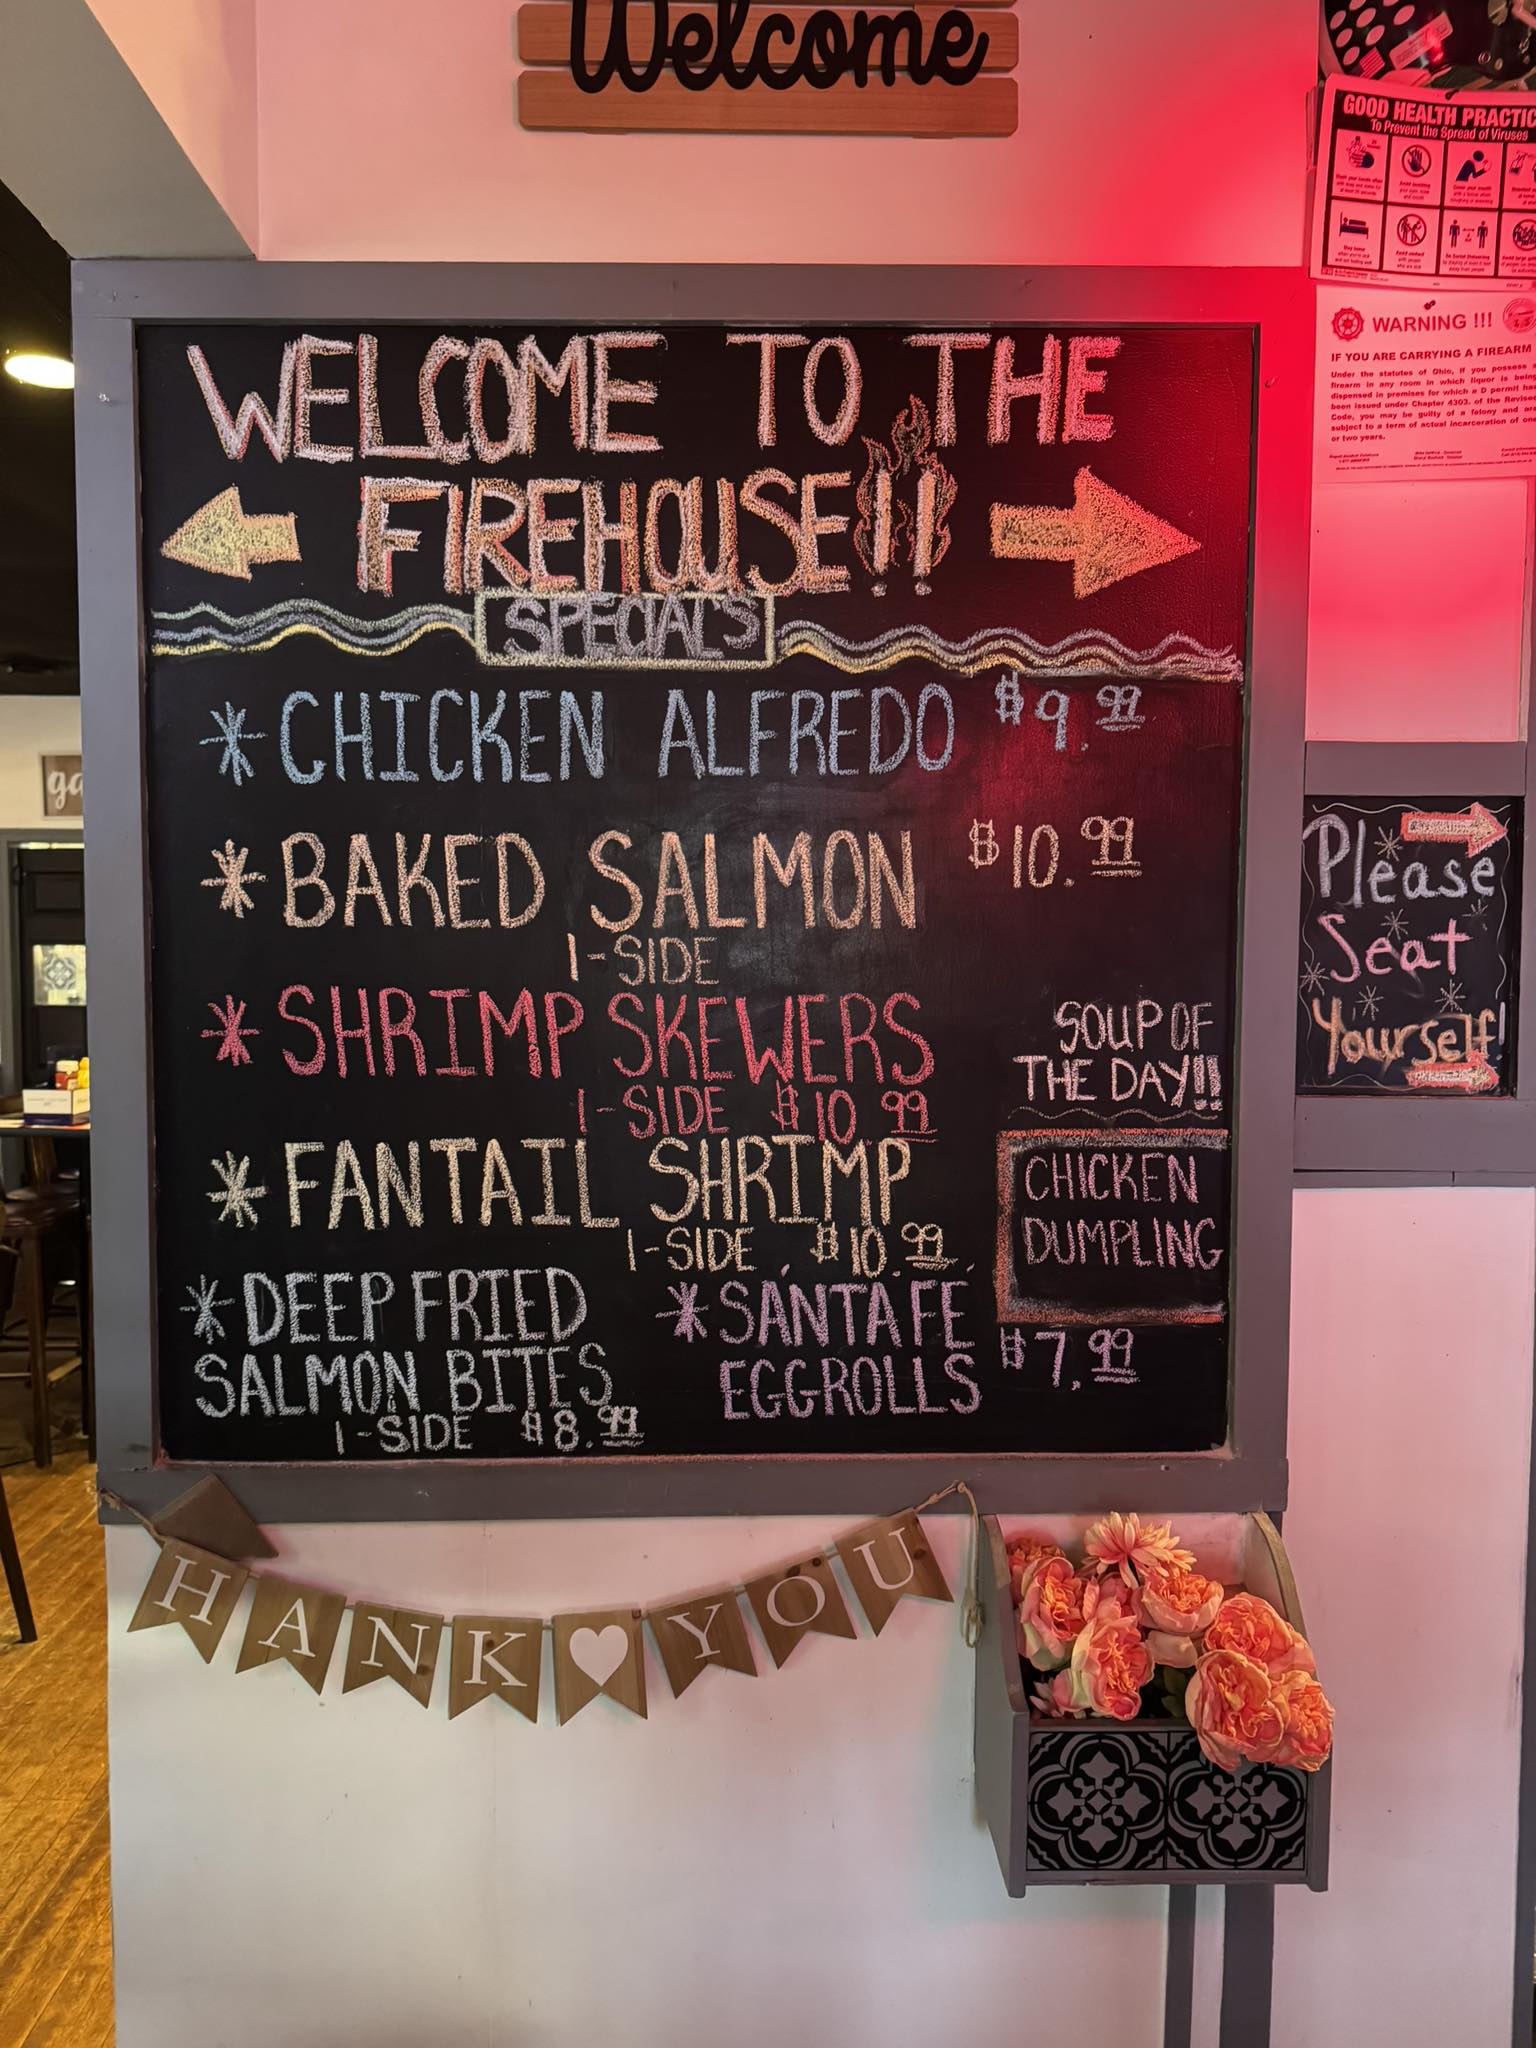 Welcome
WELCOME TO THE
FIREHOUSE!!
SPECIAL'S
* CHICKEN ALFREDO $9.99
* BAKED SALMON $10.99
1-SIDE
* SHRIMP SKEWERS
1-SIDE $10.99
* FANTAIL SHRIMP
1-SIDE $10.99
* DEEP FRIED
SALMON BITES
1-SIDE $8.99
* SANTA FE
EGGROLLS $7.99
SOUP OF
THE DAY!!
CHICKEN
DUMPLING
HANK ♥ YOU
ga
GOOD HEALTH PRACTIC
To Prevent the Spread of Viruses
WARNING !!!
IF YOU ARE CARRYING A FIREARM
Under the statutes of Ohio, if you possess a
firearm in any room in which liquor is being
dispensed in premises for which a D permit has
been issued under Chapter 4303. of the Revised
Code, you may be guilty of a felony and
subject to a term of actual incarceration of one
or two years.
Please
Seat
Yourself!